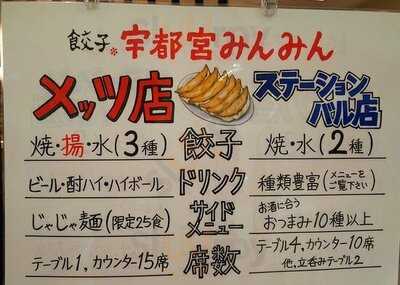 餃子 宇都宮みんみん
メッツ店 ステーションバル店
焼・揚・水(3種) 餃子 焼・水(2種)
ビール・酎ハイ・ハイボール ドリンク 種類豊富(メニューをご覧下さい)
じゃじゃ麺(限定25食) サイドメニュー お酒に合うおつまみ10種以上
テーブル1,カウンター15席 席数 テーブル4,カウンター10席
他,立呑みテーブル2